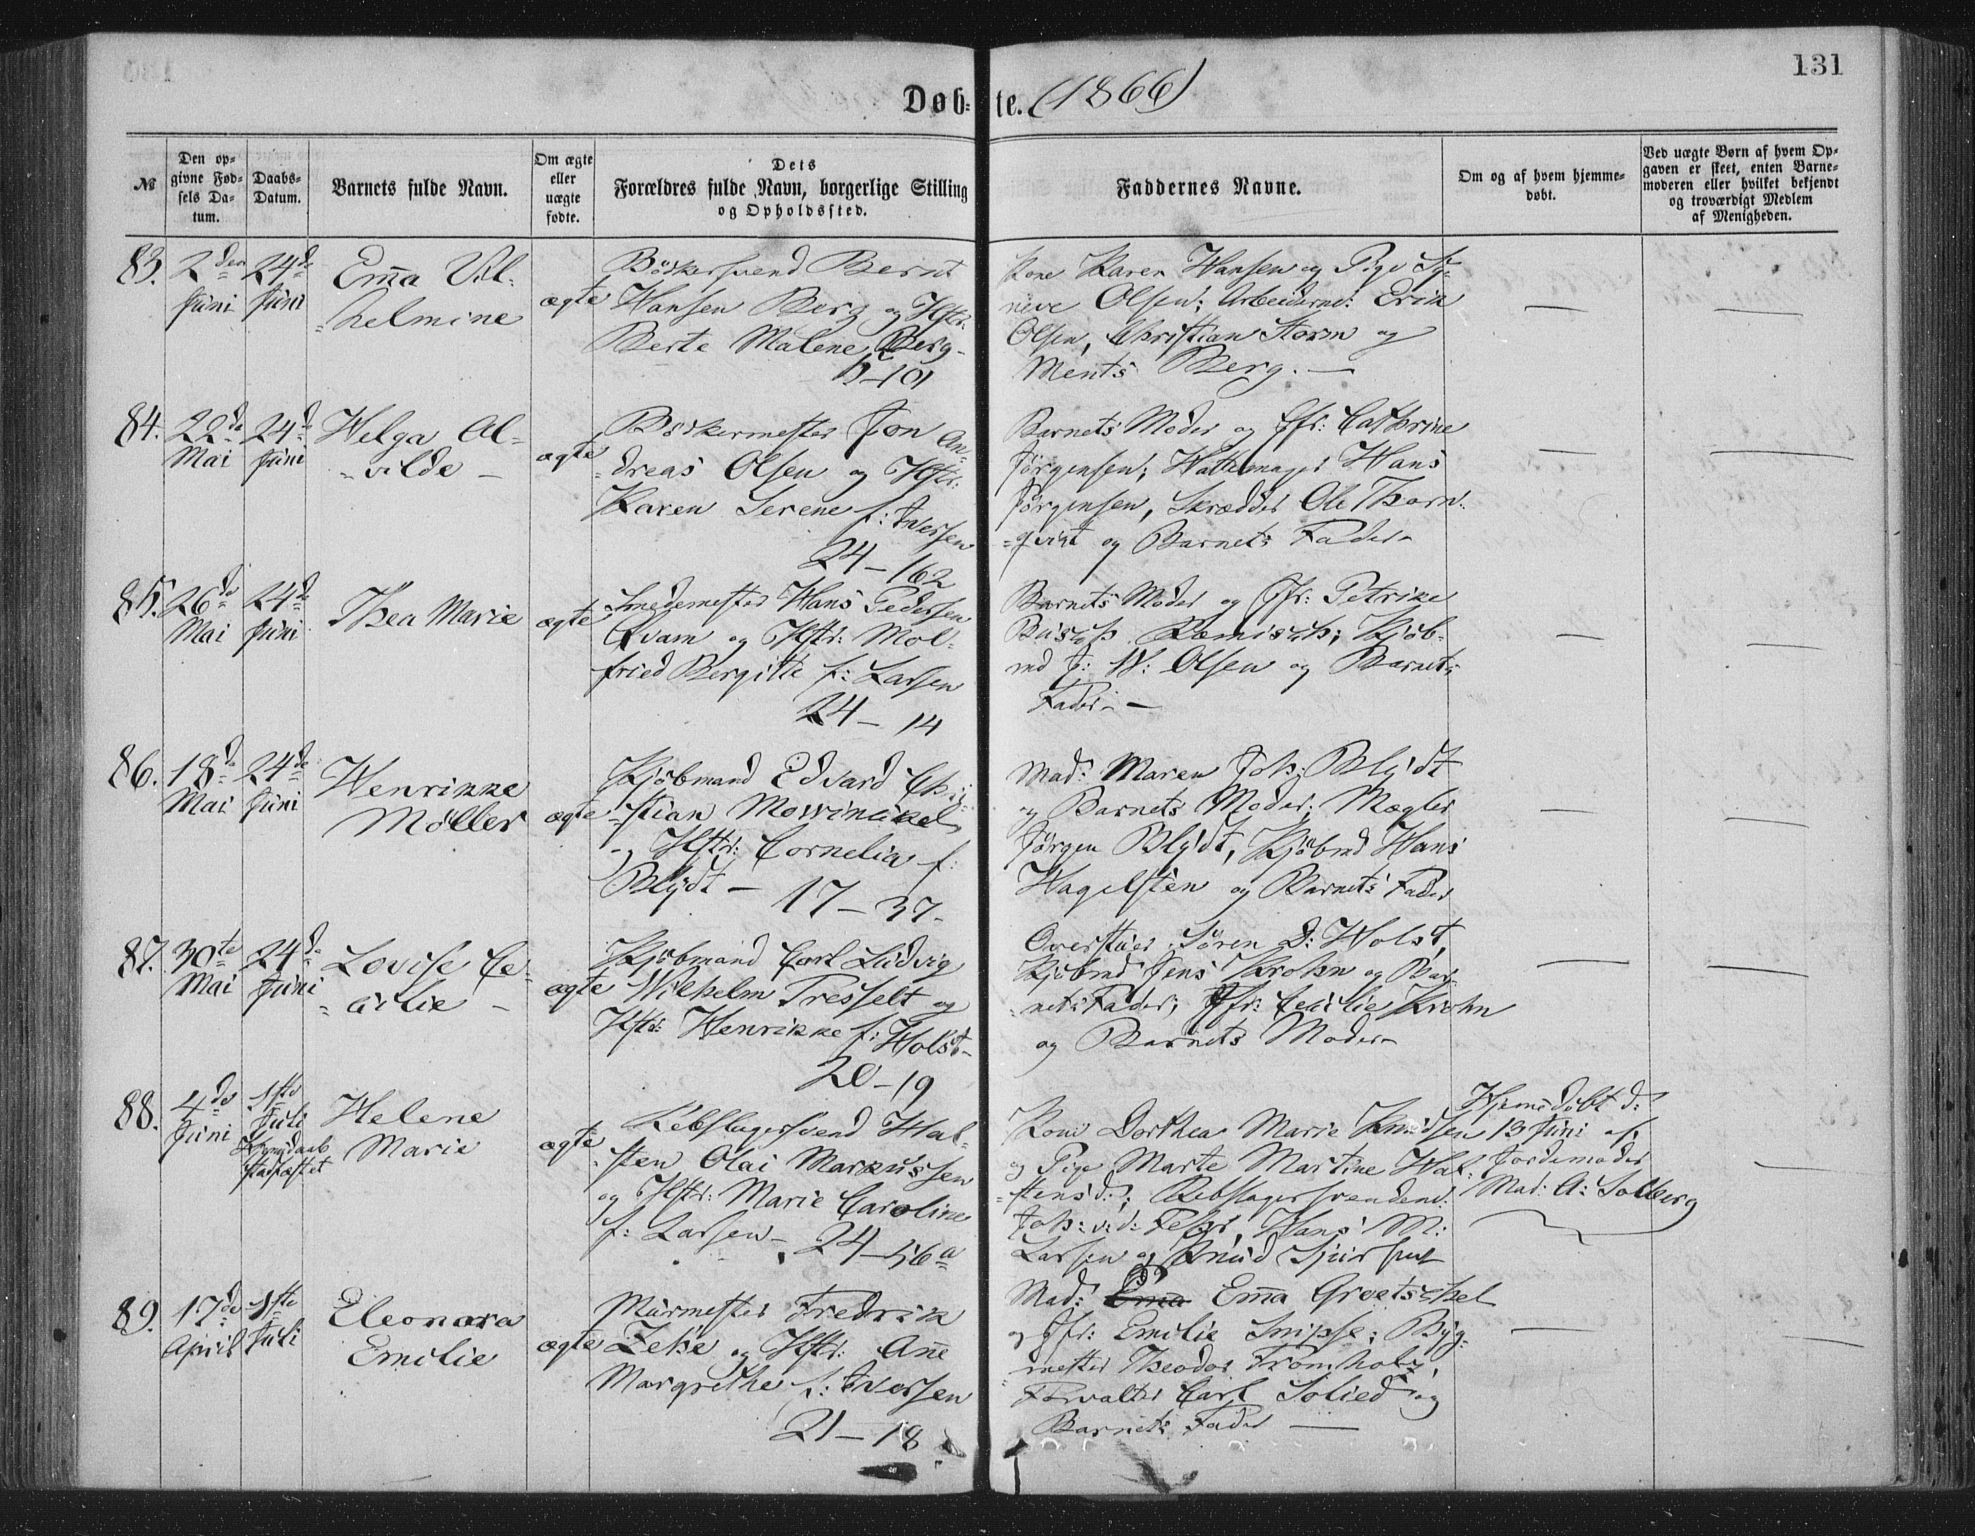 131
Døb-te. (1866)
№
Den op-
givne Fød-
sels Da-
tum.
Daabs-
Datum.
Barnets fulde Navn.
Om ægte
eller
uægte
fødte.
Dets
Forældres fulde Navn, borgerlige Stilling
og Opholdssted.
Faddernes Navne.
Om og af hvem hjemme-
døbt.
Ved uægte Børn af hvem Op-
gaven er skeet, enten Barne-
moderen eller hvilket bekjendt
og troværdigt Medlem
af Menigheden.
83. 2den Juni
24de Juni
Emma Vil-
helmine
ægte
Bødkersvend Bernt
Hansen Berg og Hstr:
Berte Malene Berg
5-101
Kone Karen Hansen og Pige Sy-
neve Olsen; Arbeiderne: Erik
Olsen, Christian Storm og
Ments Berg. —
—
—
84. 22de Mai
24de Juni
Helga Al-
vilde —
ægte
Bødkermester Jon An-
dreas Olsen og Hstr:
Karen Serene f: Iversen
24-162
Barnets Moder og Jfr: Cathrine
Jørgensen; Hattemager Hans
Jørgensen, Skrædder Ole Thorn-
qvist og Barnets Fader
—
—
85. 26de Mai
24de Juni
Thea Marie
ægte
Smedemester Hans Pedersen
Qvam og Hstr: Mol-
fried Bergitte f: Larsen
24-14
Barnets Moder og Jfr: Petrike
Romisch; Kjøb-
md J: W: Olsen og Barnets
Fader —
—
—
86. 18de Mai
24de Juni
Henrikke
Møller
ægte
Kjøbmand Edvard Chri-
stian Mowinckel
og Hstr: Cornelia f:
Blydt — 17-37-
Mad: Maren Joh: Blydt
og Barnets Moder; Mægler
Jørgen Blydt, Kjøbmd Hans
Hagelsten og Barnets Fader
—
—
87. 30te Mai
24de Juni
Lovise Ce-
cilie —
ægte
Kjøbmand Carl Ludvig
Wilhelm Tresselt og
Hstr: Henrikke f: Holst
20-19
Søren D: Holst,
Kjøbmd Jens Krohn og Bar-
nets Fader; Jfr: Cecilie Krohn
og Barnets Moder
—
—
88. 4de Juni
1ste Juli
stadfæstet
Helene
Marie
ægte
Rebslagersvend Hal-
sten Olai Markussen
og Hstr: Marie Caroline
f: Larsen — 24-56a
Kone Dorthea Marie Knudsen
og Pige Marte Martine Hal-
stensd:; Rebslagersvendene:
Hans M:
Larsen og Knud Sjursen
Hjemmedøbt d:
13 Juni af
Jordemoder
Mad: A: Solberg
—
89. 17de April
1ste Juli
Eleonora
Emilie
ægte
Murmester Fredrik
Zeke og Hstr: Ane
Margrethe f: Iversen
21-18
Mad: Emma Groetschel
og Jfr: Emilie Snipse; Byg-
mester Theodor Fromholz,
Forvalter Carl Solied og
Barnets Fader —
—
—